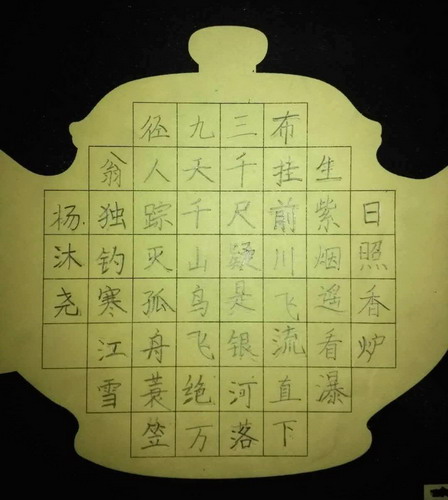 日照香炉
生紫烟遥看瀑
布挂前川飞流直下
三千尺疑是银河落
九天千山鸟飞绝万
径人踪灭孤舟蓑笠
翁独钓寒江雪
杨沐尧